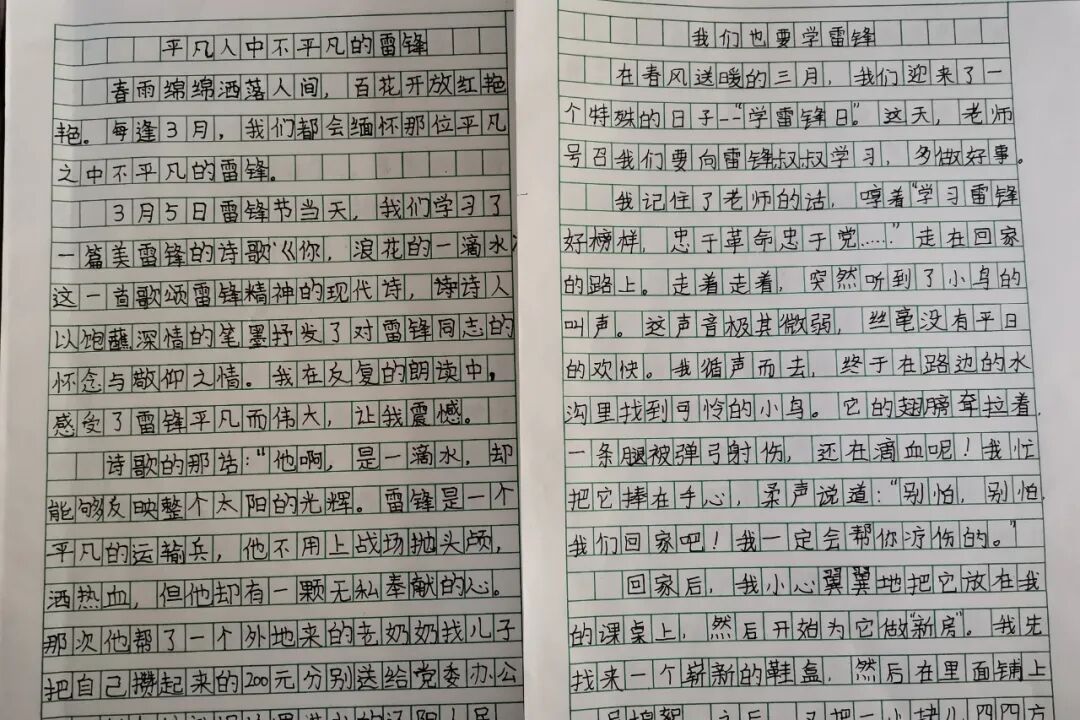 平凡人中不平凡的雷锋
春雨绵绵洒落人间，百花开放红艳
艳。每逢3月，我们都会缅怀那位平凡
之中不平凡的雷锋。
3月5日雷锋节当天，我们学习了
一篇美雷锋的诗歌《你，浪花的一滴水
这一首歌颂雷锋精神的现代诗，诗诗人
以饱蘸深情的笔墨抒发了对雷锋同志的
怀念与敬仰之情。我在反复的朗读中，
感受了雷锋平凡而伟大，让我震憾。
诗歌的那话："他啊，是一滴水，却
能够反映整个太阳的光辉。雷锋是一个
平凡的运输兵，他不用上战场抛头颅，
洒热血，但他却有一颗无私奉献的心。
那次他帮了一个外地来的老奶奶找儿子
把自己攒起来的200元分别送给党委办公
我们也要学雷锋
在春风送暖的三月，我们迎来了一
个特殊的日子--"学雷锋日"。这天，老师
号召我们要向雷锋叔叔学习，多做好事。
我记住了老师的话，哼着"学习雷锋
好榜样，忠于革命忠于党……"走在回家
的路上。走着走着，突然听到了小鸟的
叫声。这声音极其微弱，丝毫没有平日
的欢快。我循声而去，终于在路边的水
沟里找到可怜的小鸟。它的翅膀牵拉着
一条腿被弹弓射伤，还在滴血呢！我忙
把它捧在手心，柔声说道："别怕，别怕
我们回家吧！我一定会帮你疗伤的。"
回家后，我小心翼翼地把它放在我
的课桌上，然后开始为它做"新房"。我先
找来一个崭新的鞋盒，然后在里面铺上